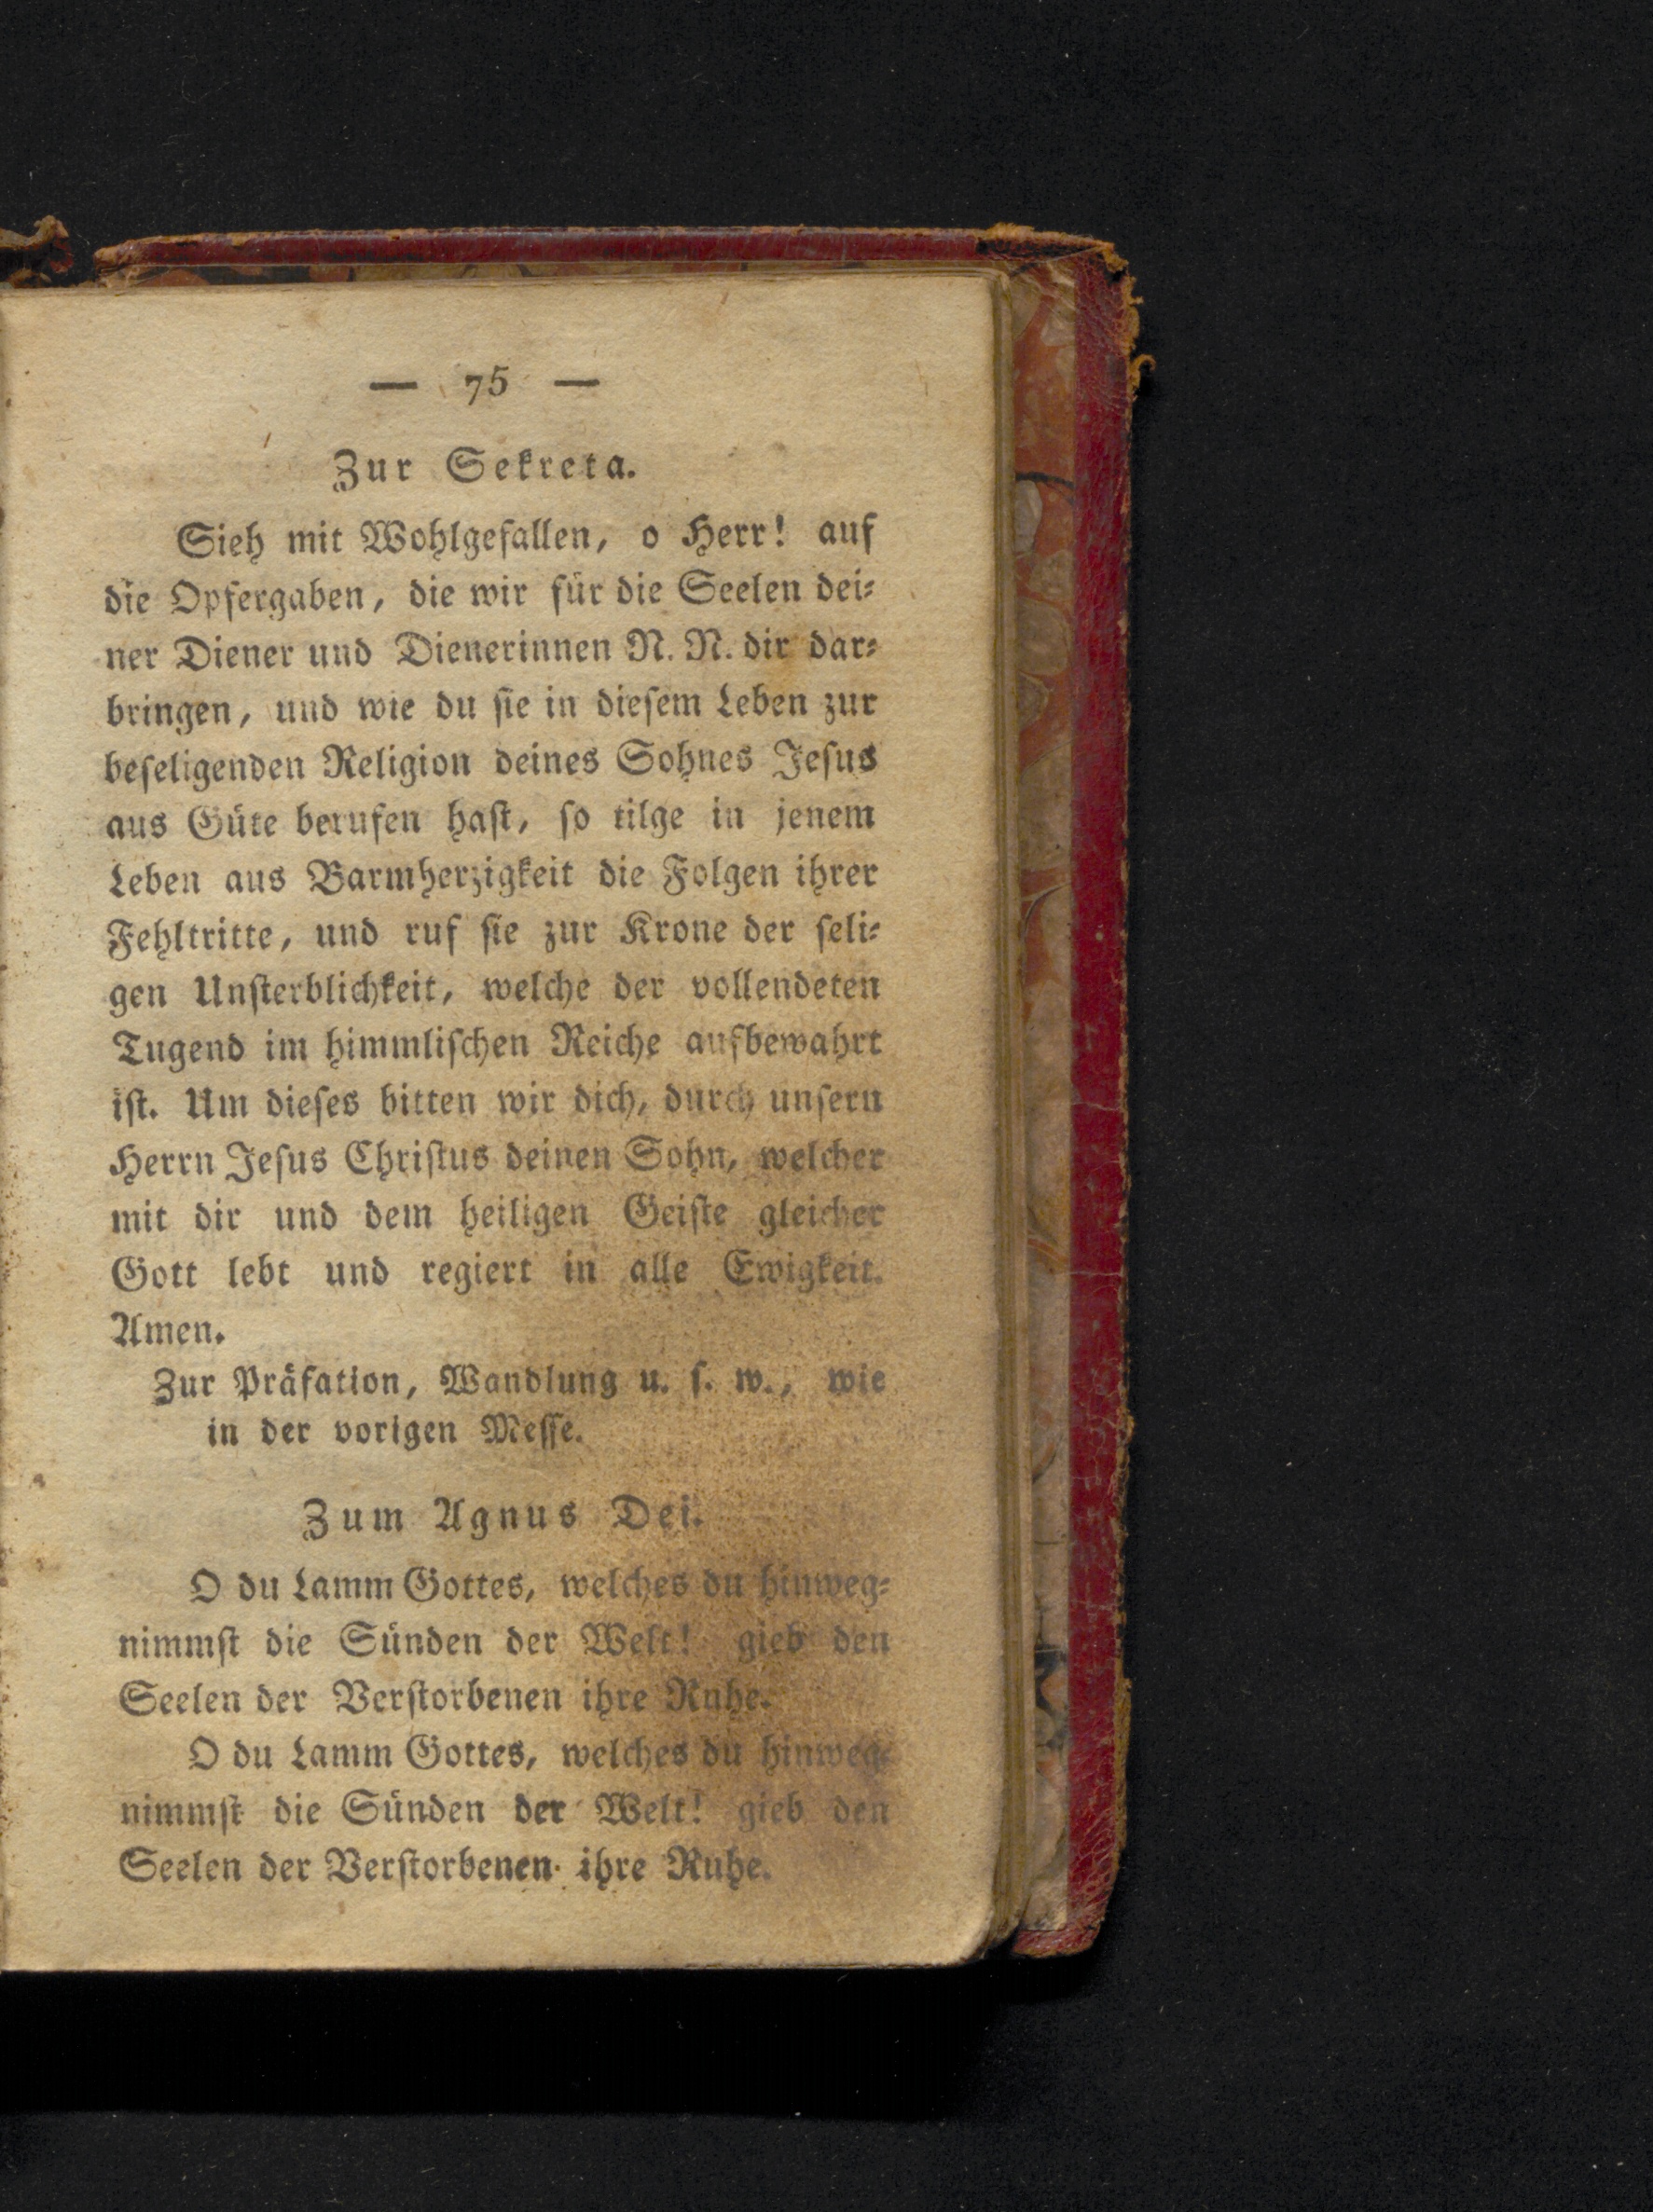 — 75 —
Zur Sekreta.
Sieh mit Wohlgefallen, o Herr! auf
die Opfergaben, die wir für die Seelen dei⸗
ner Diener und Dienerinnen N. N. dir dar⸗
bringen, und wie du ſie in dieſem Leben zur
beſeligenden Religion deines Sohnes Jeſus
aus Güte berufen haſt, ſo tilge in jenem
Leben aus Barmherzigkeit die Folgen ihrer
Fehltritte, und ruf ſie zur Krone der ſeli⸗
gen Unſterblichkeit, welche der vollendeten
Tugend im himmliſchen Reiche aufbewahrt
iſt. Um dieſes bitten wir dich, durch unſern
Herrn Jeſus Chriſtus deinen Sohn, welcher
mit dir und dem heiligen Geiſte gleicher
Gott lebt und regiert in alle Ewigkeit.
Amen.
Zur Präfation, Wandlung u. ſ. w., wie
in der vorigen Meſſe.
Zum Agnus Dei.
O du Lamm Gottes, welches du hinweg⸗
nimmſt die Sünden der Welt! gieb den
Seelen der Verſtorbenen ihre Ruhe.
O du Lamm Gottes, welches du hinweg⸗
nimmſt die Sünden der Welt! gieb den
Seelen der Verſtorbenen ihre Ruhe.